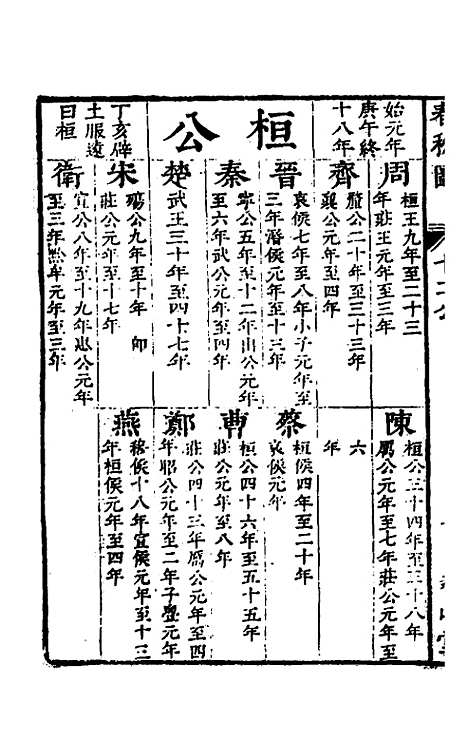 春秋圖
十二公
始元年
庚午終
十八年
桓公
丁亥辟
土服遠
曰桓
周
桓王九年至二十三
年莊王元年至三年
齊
釐公二十年至三十三年
襄公元年至四年
晉
哀侯七年至八年小子元年至
三年湣侯元年至十三年
秦
寧公五年至十二年出公元年
至六年武公元年至四年
楚
武王三十年至四十七年
宋
殤公九年至十年
莊公元年至十七年
衛
宣公八年至十九年惠公元年
至三年黔牟元年至三年
陳
桓公三十四年至三十八年
厲公元年至七年莊公元年至
六
年
蔡
桓侯四年至二十年
哀侯元年
曹
桓公四十六年至五十五年
莊公元年至八年
鄭
莊公四十三年厲公元年至四
年昭公元年至二年子亹元年
燕
穆侯十八年宣侯元年至十三
年桓侯元年至四年